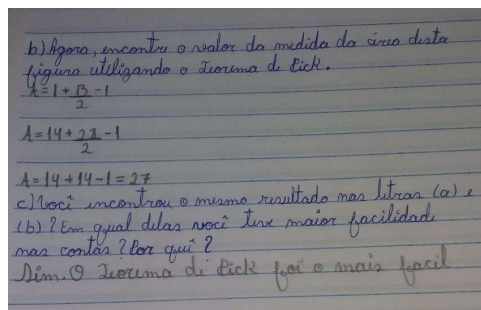 b) Agora, encontre o valor da medida da área desta
figura utilizando o Teorema de Pick.
A = 1 + B/2 - 1
A = 14 + 28/2 - 1
A = 14 + 14 - 1 = 27
c) Você encontrou o mesmo resultado nas letras (a) e
(b)? Em qual delas você teve maior facilidade
nas contas? Por quê?
Sim. O Teorema de Pick foi o mais facil